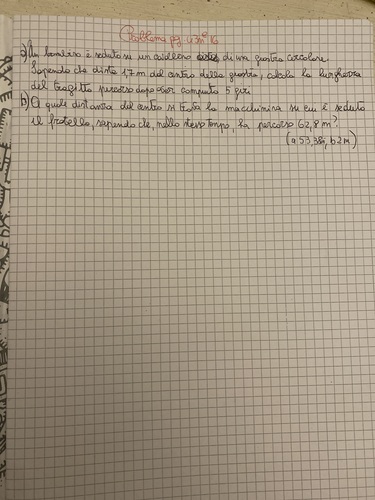 Problema pg. 43 n° 16
a) Un bambino è seduto su un cavallino di una giostra circolare.
Sapendo che dista 1,7 m dal centro della giostra, calcola la lunghezza
del tragitto percorso dopo aver compiuto 5 giri
b) A quale distanza dal centro si trova la macchinina su cui è seduto
il fratello, sapendo che, nello stesso tempo, ha percorso 62,8 m?
(a 53,38m, b 2 m)